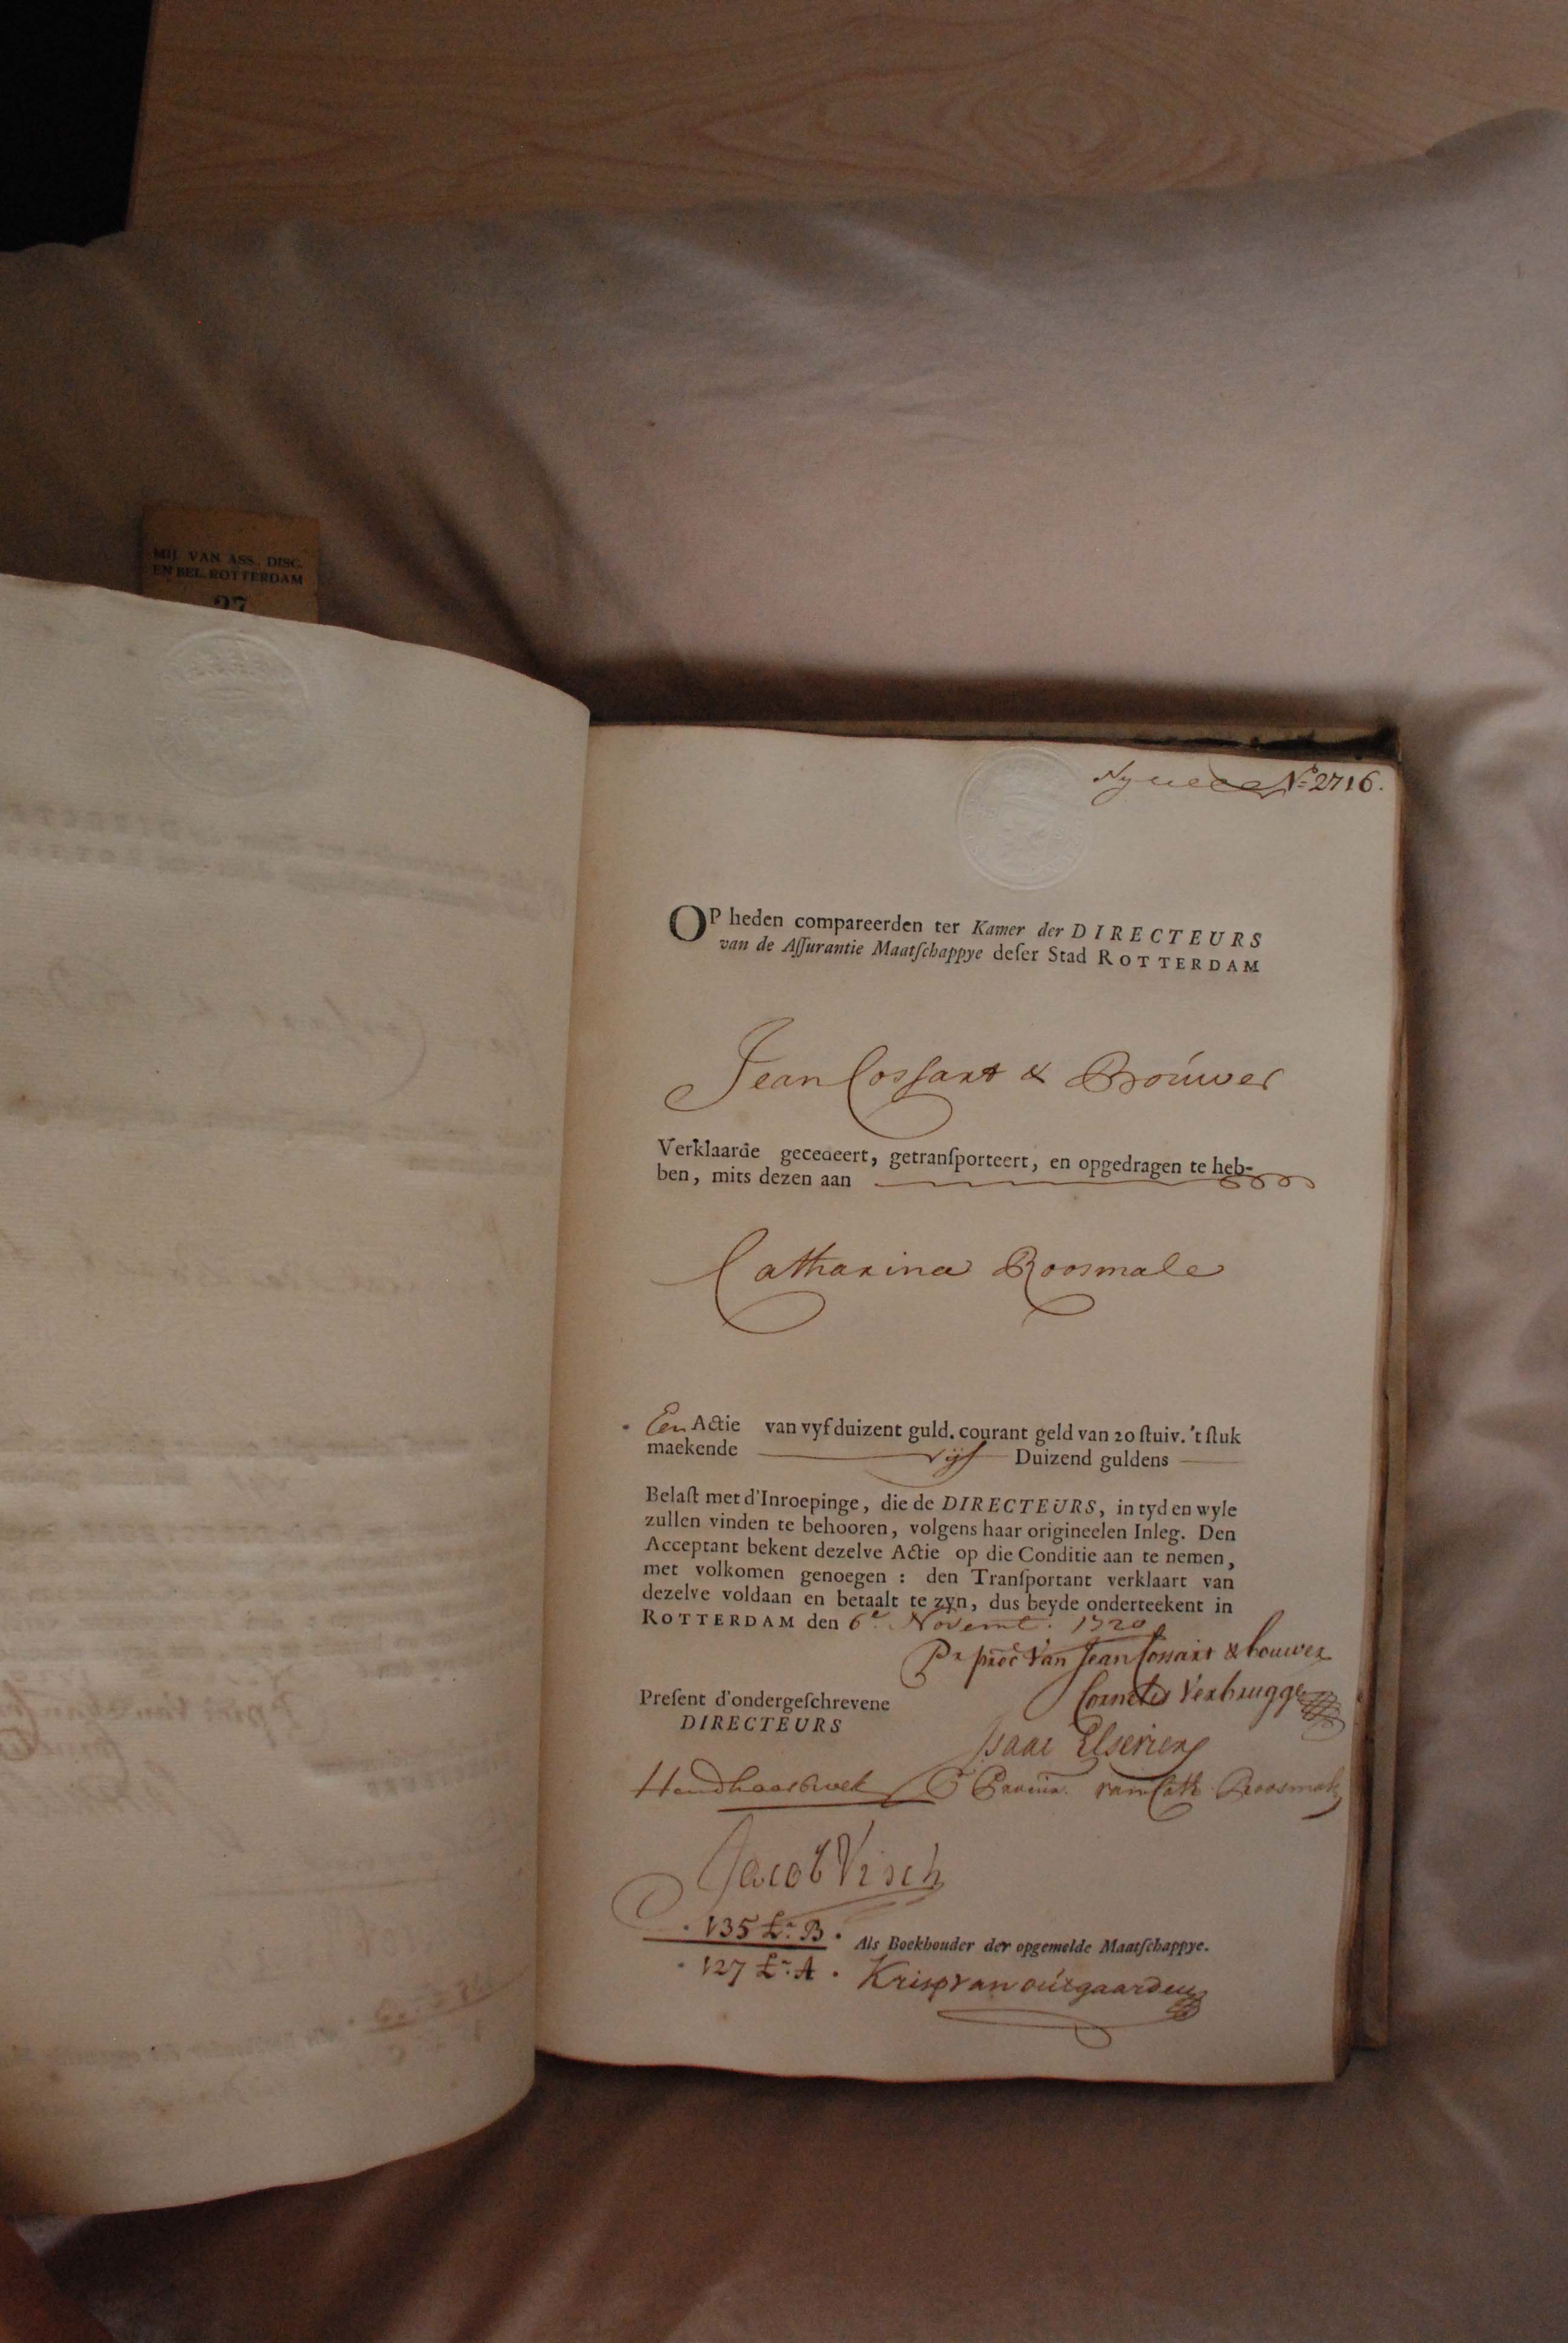 MIJ. VAN ASS. DISC.
EN BEL. ROTTERDAM
27
No 2716.
OP heden compareerden ter Kamer der DIRECTEURS
van de Aſſurantie Maatſchappye deſer Stad ROTTERDAM
Jean Cossart & Bouwer
Verklaarde gecedeert, getranſporteert, en opgedragen te heb-
ben, mits dezen aan
Catharina Roosmale
Een Actie van vyf duizent guld. courant geld van 20 ſtuiv. 't ſtuk
maekende vijf Duizend guldens
Belaſt met d'Inroepinge, die de DIRECTEURS, in tyd en wyle
zullen vinden te behooren, volgens haar origineelen Inleg. Den
Acceptant bekent dezelve Actie op die Conditie aan te nemen,
met volkomen genoegen : den Tranſportant verklaart van
dezelve voldaan en betaalt te zyn, dus beyde onderteekent in
ROTTERDAM den 6e Novemb. 1720
Pr proc Van Jean Cossart & bouwer
Cornelis Verbrugge
Preſent d'ondergeſchrevene
DIRECTEURS
Isaac Elsevier
van Cath Roosmale
Jacob Visch
135 Lr B.
Als Boekhouder der opgemelde Maatſchappye.
127 Lr A.